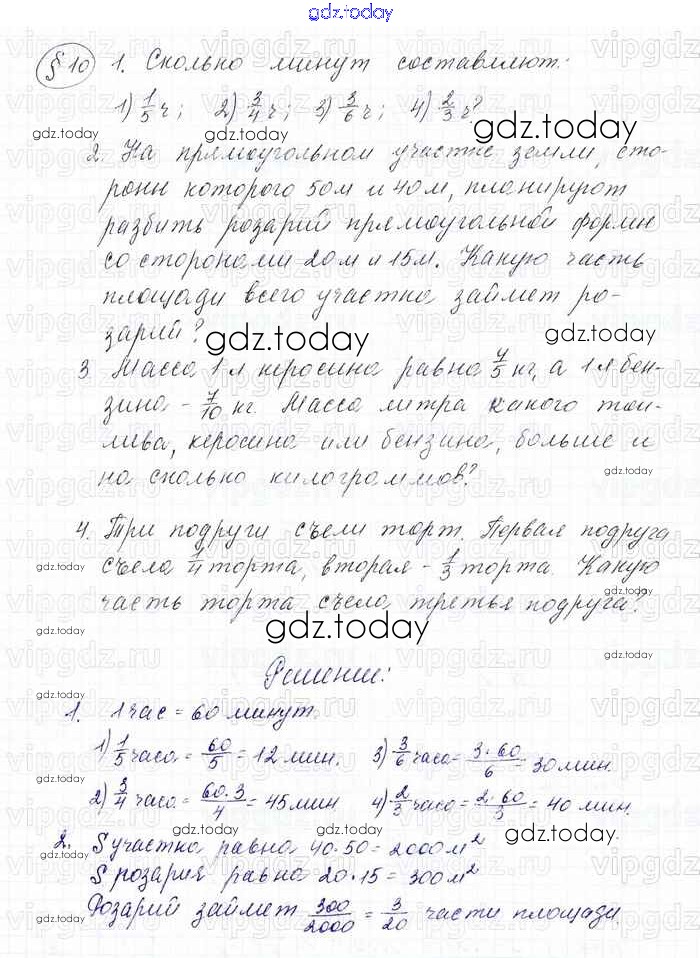 gdz.today
§ 10 1. Сколько минут составляют:
1) 1/5 ч; 2) 3/4 ч; 3) 3/6 ч; 4) 2/3 ч?
2. На прямоугольном участке земли, сто-
роны которого 50м и 40м, планируют
разбить розарий прямоугольной формы
со сторонами 20м и 15м. Какую часть
площади всего участка займет ро-
зарий?
3 Масса 1 л керосина равна 4/5 кг, а 1 л бен-
зина - 7/10 кг. Масса литра какого топ-
лива, керосина или бензина, больше и
на сколько килограммов?
4. Три подруги съели торт. Первая подруга
съела 1/4 торта, вторая - 1/3 торта. Какую
часть торта съела третья подруга?
Решение:
1. 1 час = 60 минут.
1) 1/5 часа = 60/5 = 12 мин. 3) 3/6 часа = 3·60/6 = 30 мин.
2) 3/4 часа = 60·3/4 = 45 мин 4) 2/3 часа = 2·60/3 = 40 мин.
2. S участка равна 40·50 = 2000 м²
S розария равна 20·15 = 300 м²
Розарий займет 300/2000 = 3/20 части площади.